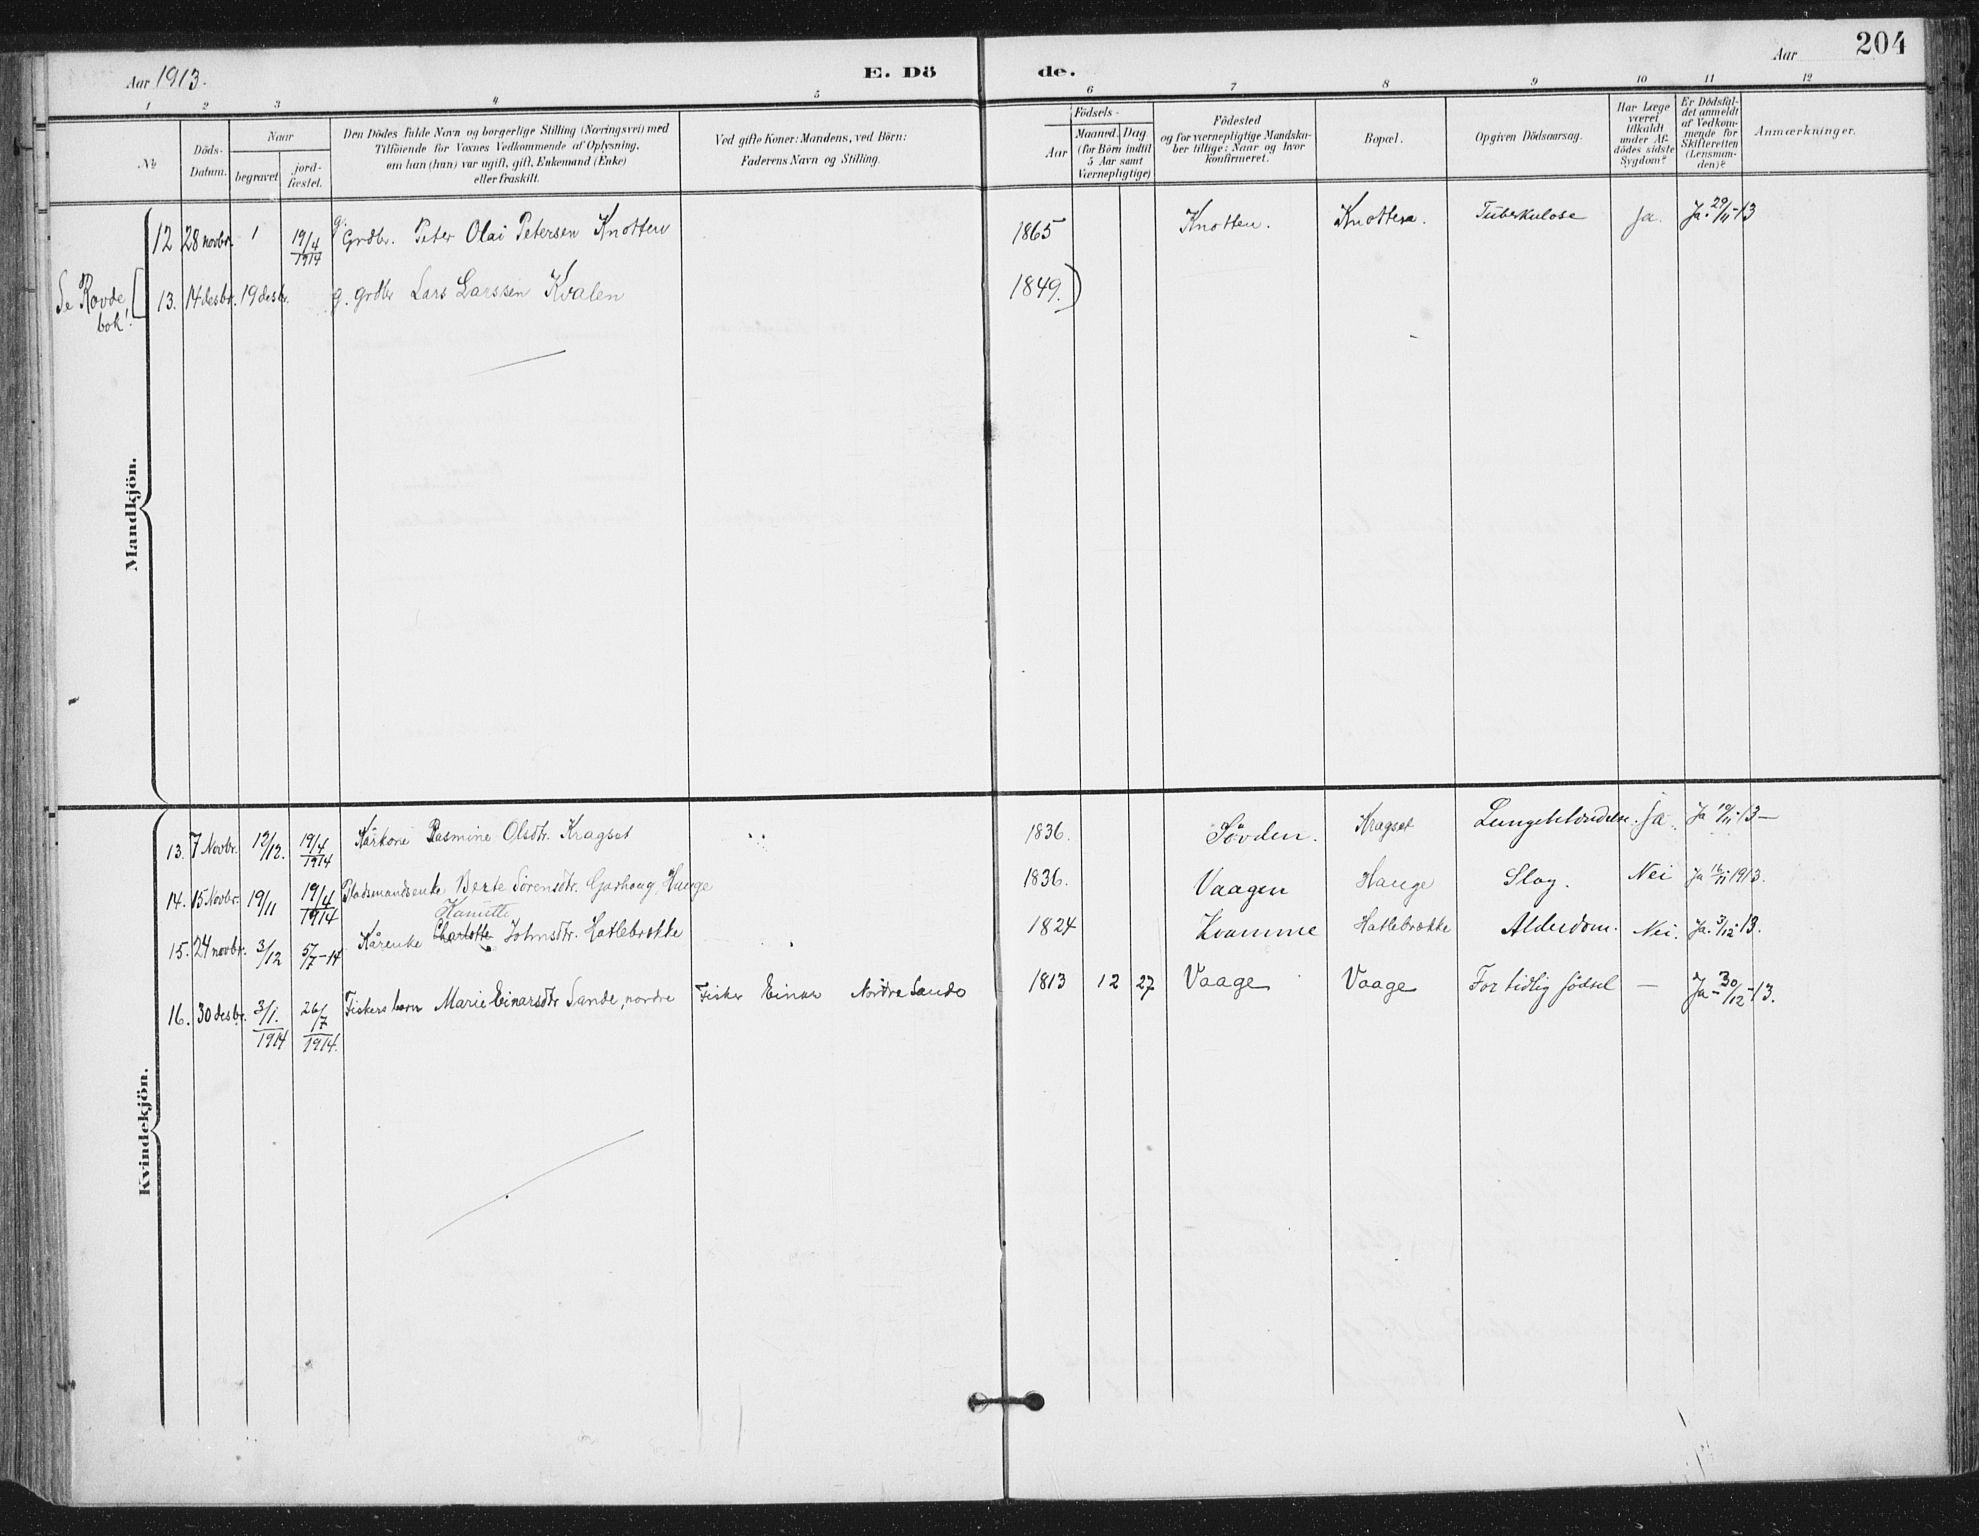 Aar 1913.
E. Dö
de.
Aar
204
1 2 3 4 5 6 7 8 9 10 11 12
№
Döds-
Datum.
Naar
begravet
jord-
fæstet.
Den Dödes fulde Navn og borgerlige Stilling (Næringsvei) med
Tilföiende for Voxnes Vedkommende af Oplysning,
om han (hun) var ugift, gift, Enkemand (Enke)
eller fraskilt.
Ved gifte Koner: Mandens, ved Börn:
Faderens Navn og Stilling.
Födsels-
Aar
Maaned. Dag
(for Börn indtil
5 Aar samt
Værnepligtige)
Födested
og for værnepligtige Mandska-
ber tillige: Naar og hvor
konfirmeret.
Bopæl.
Opgiven Dödsaarsag.
Har Læge
været
tilkaldt
under Af-
dödes sidste
Sygdom?
Er Dödsfal-
det anmeldt
af Vedkom-
mende for
Skifteretten
(Lensman-
den)?
Anmærkninger.
Mandkjön.
12 28 novbr. 1 19/4 1914 g. Grdbr. Peter Olai Petersen Knotten 1865 Knotten. Knotten. Tuberkulose Ja. Ja. 29/11-13
Se Rovde
bok!
13. 14 desbr. 19 desbr. g. grdbr Lars Larssen Kvalen 1849.)
Kvindekjön.
13. 7 Novbr. 12/12. 19/4 1914 Kårkone Rasmine Olsdtr. Kragset 1836. Sövden. Kragset Lungebetændelse. Ja. Ja 10/11-13-
14. 15 Novbr. 19/11 19/4 1914 Pladsmandsenke Berte Sörensdtr. Garhaug, Hauge 1836. Vaagen Hauge Slag. Nei Ja 16/11 1913.
Hanutte
15. 24 novbr. 3/12 5/7-14 Kårenke Charlotte Johnsdtr. Hatlebrekke 1824 Kvamme Hatlebrekke Alderdom. Nei. Ja. 3/12-13.
16. 30 desbr. 3/1. 1914 26/7 1914. Fiskers barn Marie Einarsdtr Sande, nordre Fisker Einar Nordre Sande 1813 12 27 Vaage Vaage For tidlig födsel — Ja - 30/12-13.